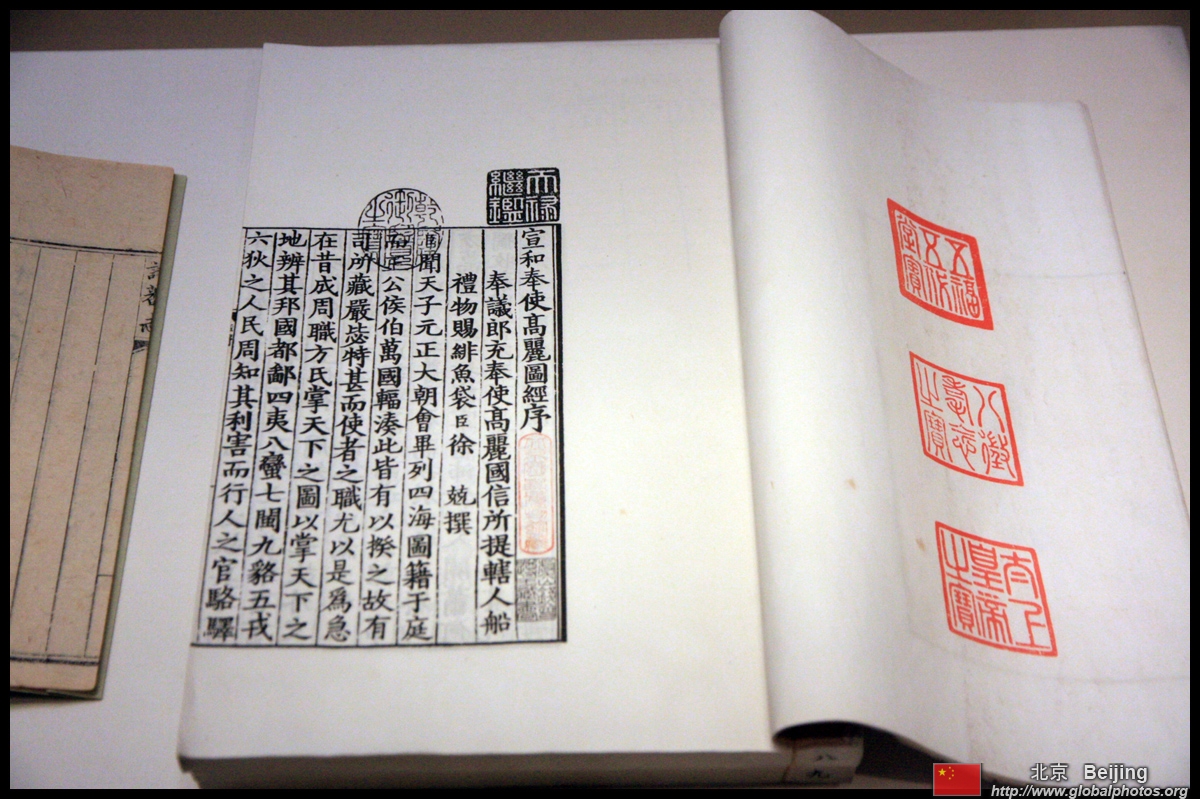 五福五代堂寶
八徵耄念之寶
太上皇帝之寶
天禄繼鑑
乾隆御覽之寶
宣和奉使髙麗圖經序
奉議郎充奉使髙麗國信所提轄人船
禮物賜緋魚袋臣徐 兢撰
聞天子元正大朝會畢列四海圖籍于庭
公侯伯萬國輻湊此皆有以揆之故有
司所藏嚴毖特甚而使者之職尤以是爲急
在昔成周職方氏掌天下之圖以掌天下之
地辨其邦國都鄙四夷八蠻七閩九貉五戎
六狄之人民周知其利害而行人之官駱驛
諸蕃志
八九
北京 Beijing
http://www.globalphotos.org